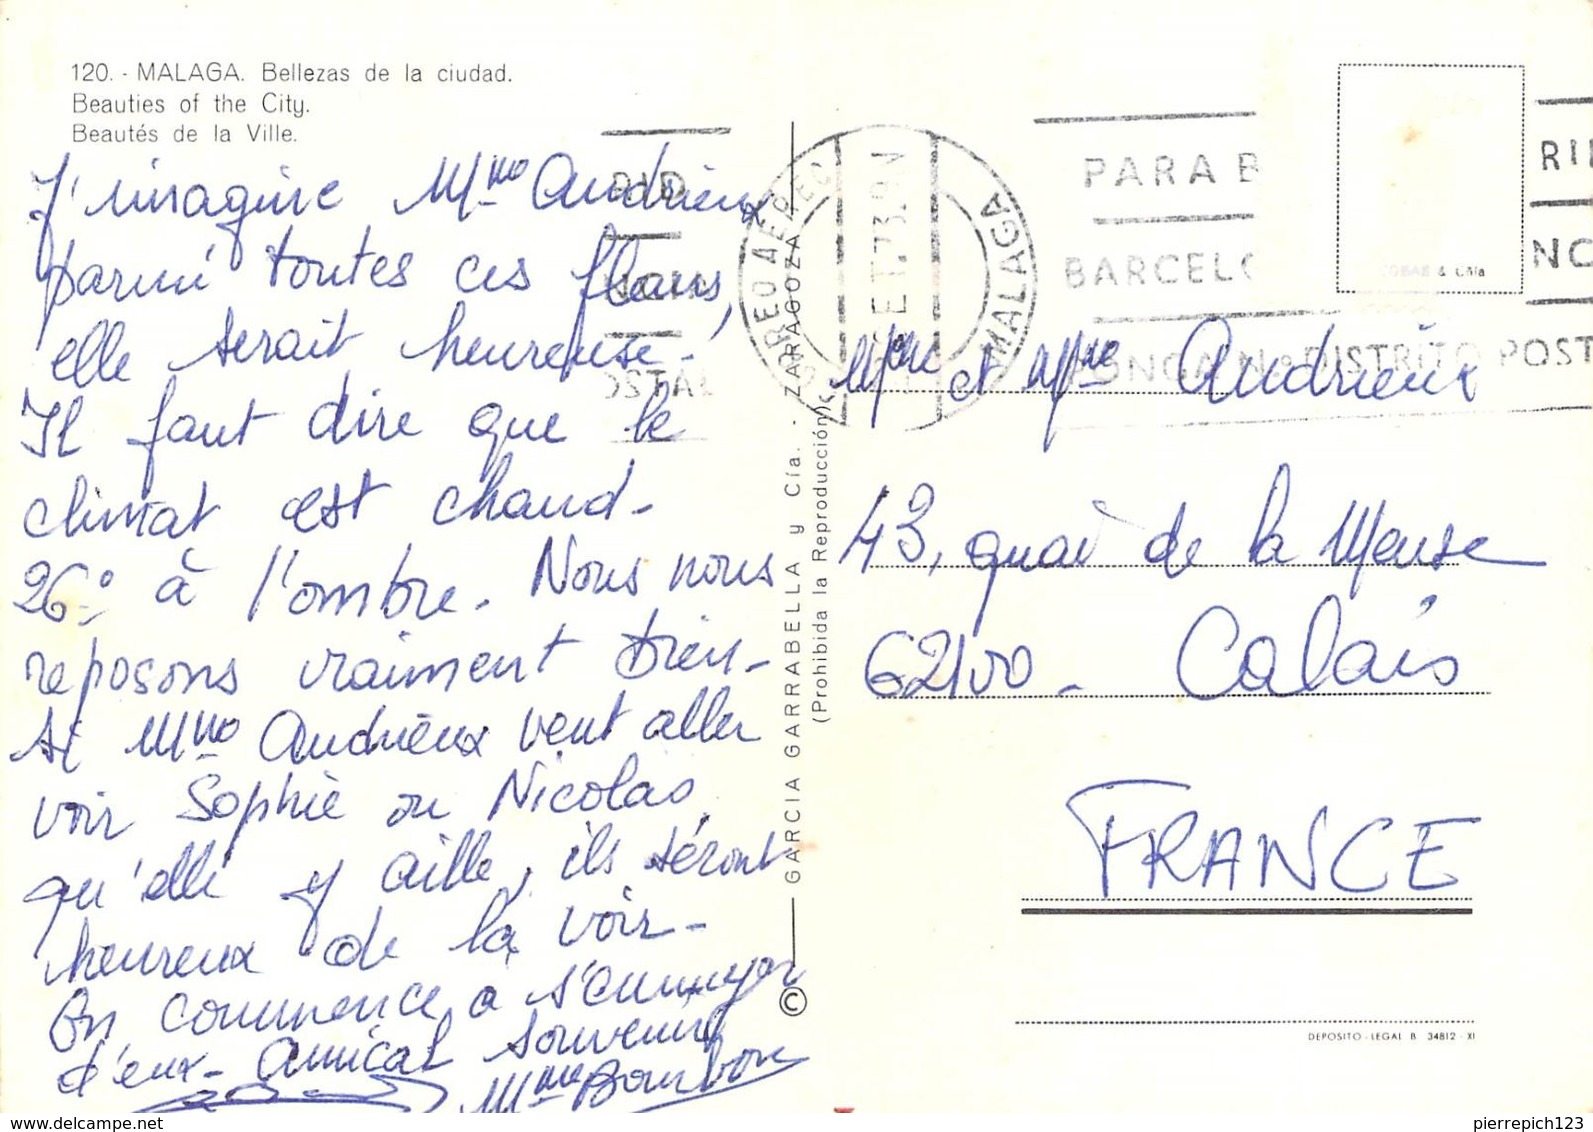 120. - MALAGA. Bellezas de la ciudad.
Beauties of the City.
Beautés de la Ville.
J'imagine Mme Andrieux
parmi toutes ces fleurs,
elle serait heureuse.
Il faut dire que le
climat est chaud -
26° à l'ombre. Nous nous
reposons vraiment bien -
Si Mme Andrieux veut aller
voir Sophie ou Nicolas
qu'elle y aille, ils seront
heureux de la voir -
On commence à s'ennuyer
d'eux - Amical souvenir
Mme Bourbon
GARCIA GARRABELLA y Cía. - ZARAGOZA
(Prohibida la Reproducción)
©
CORREO AEREO
MALAGA
73
PARA B
BARCELO
N.º DISTRITO POST
RI
NC
OSTAL
Mr et Mme Andrieux
43, quai de la Meuse
62100 - Calais
FRANCE
DEPOSITO - LEGAL B 34812 - XI
pierrepich123